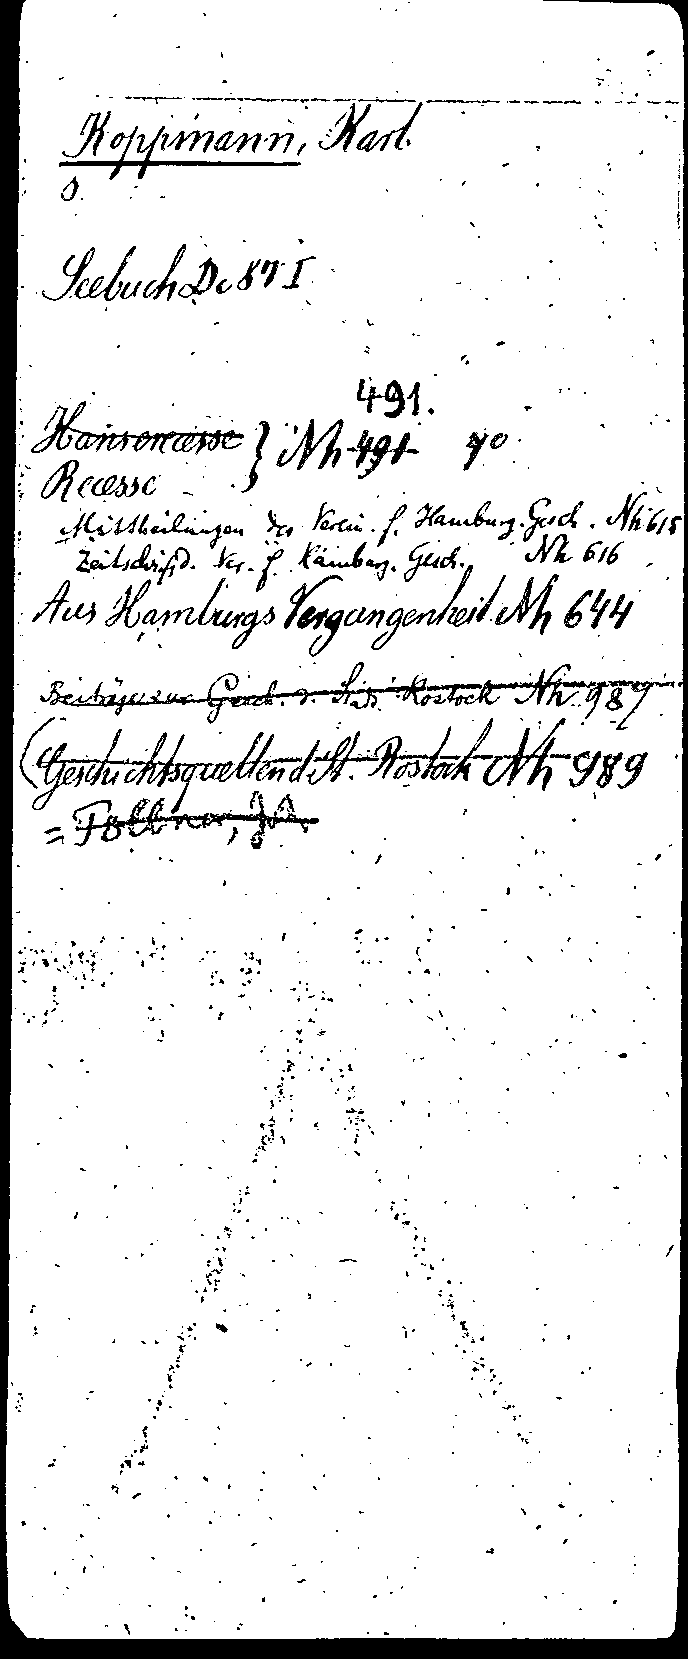 Koppmann, Karl.
s.
Seebuch Dc 87 I
491.
Hanserecesse } Nh 491 4°
Recesse
Mittheilungen des Verein. f. Hamburg. Gesch. Nh 615
Zeitschrift d. Ver. f. Hamburg. Gesch. Nh 616
Aus Hamburgs Vergangenheit Nh 644
Beiträge zur Gesch. d. Stadt Rostock Nh 987
(Geschichtsquellen d. St. Rostock Nh 989
=